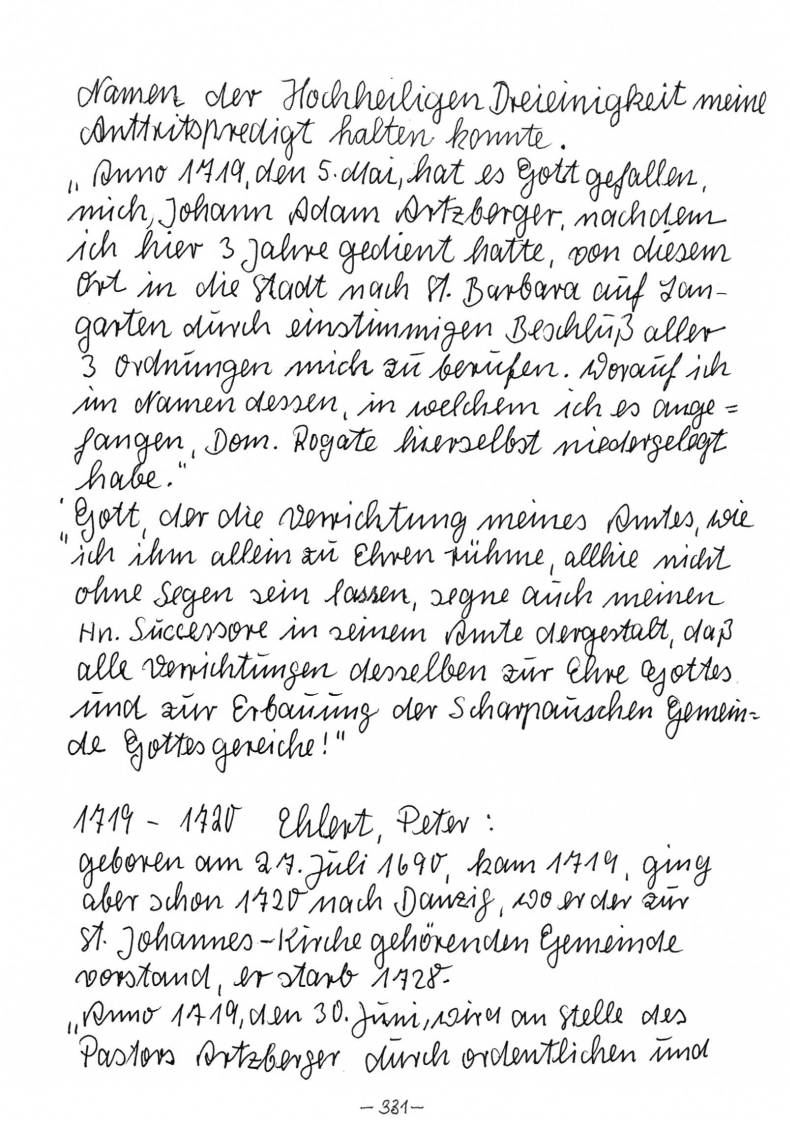 Namen der Hochheiligen Dreieinigkeit meine
Anttritspredigt halten konnte.
„Anno 1719, den 5. Mai, hat es Gott gefallen,
mich, Johann Adam Artzberger, nachdem
ich hier 3 Jahre gedient hatte, von diesem
Ort in die Stadt nach St. Barbara auf Lan-
garten durch einstimmigen Beschluß aller
3 Ordnungen mich zu berufen. Worauf ich
im Namen dessen, in welchem ich es ange=
fangen, Dom. Rogate hierselbst niedergelegt
habe."
„Gott, der die Verrichtung meines Amtes, wie
ich ihm allein zu Ehren rühme, allhie nicht
ohne Segen sein lassen, segne auch meinen
Hn. Successore in seinem Amte dergestalt, daß
alle Verrichtungen desselben zur Ehre Gottes
und zur Erbauung der Scharpauschen Gemein=
de Gottes gereiche!"
1719 - 1720 Ehlert, Peter:
geboren am 27. Juli 1690, kam 1719, ging
aber schon 1720 nach Danzig, wo er der zur
St. Johannes-Kirche gehörenden Gemeinde
vorstand, er starb 1728.
„Anno 1719, den 30. Juni, wird an Stelle des
Pastors Artzberger durch ordentlichen und
- 331 -